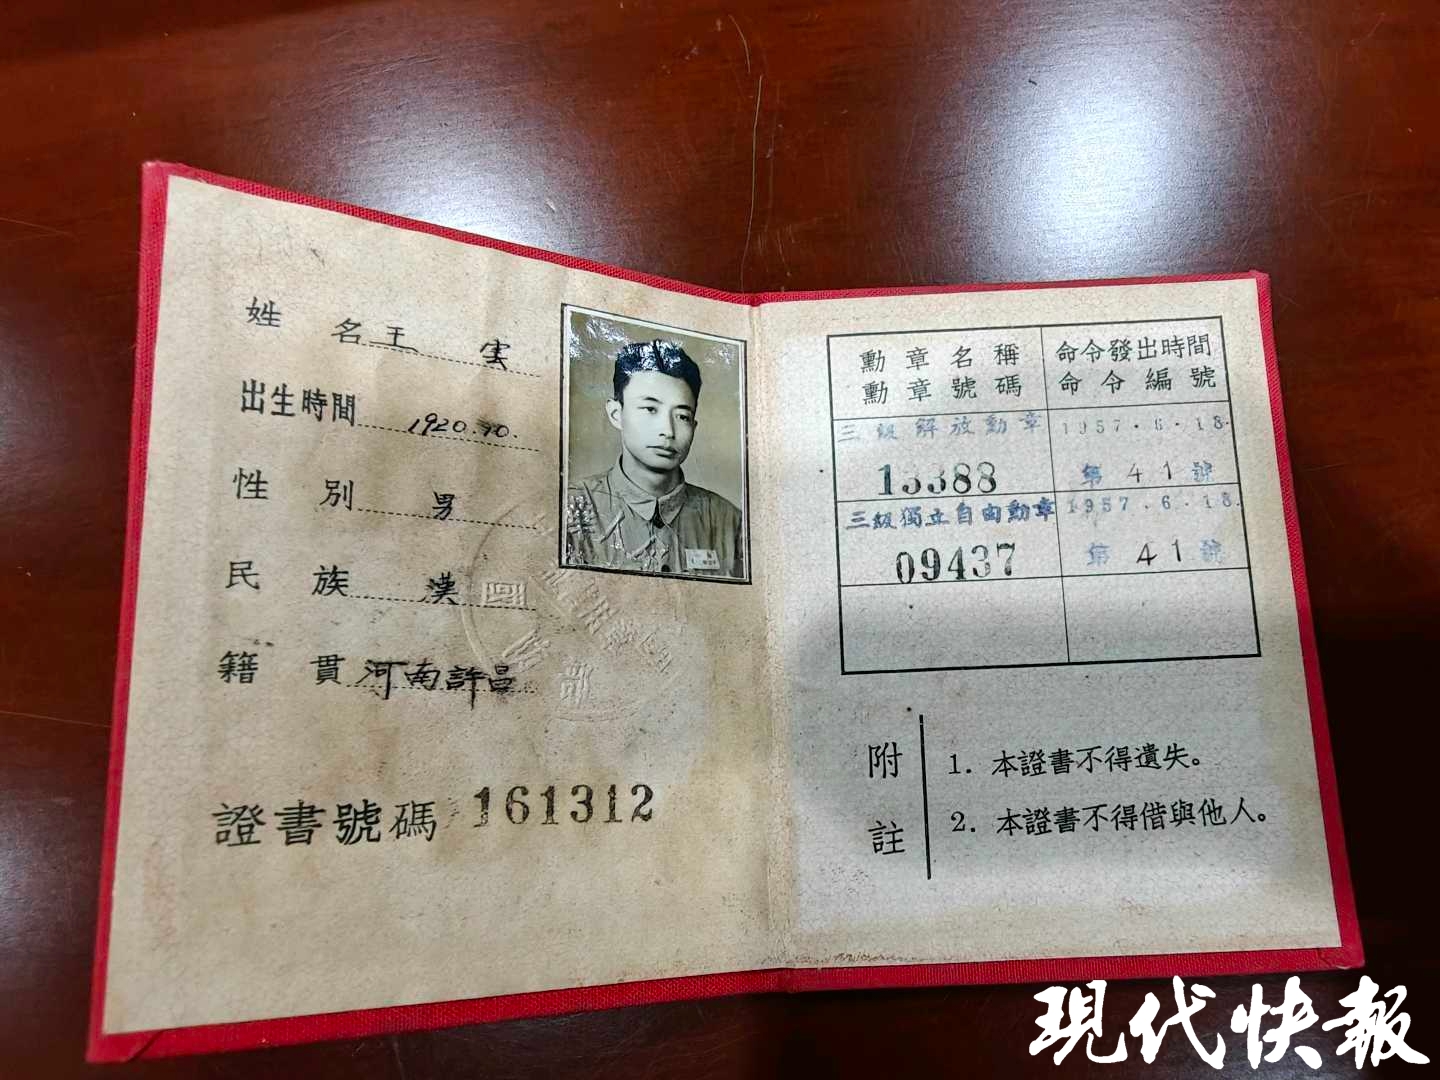 姓 名 王 雲
出生時間 1920.10.
性 別 男
民 族 漢
籍 貫 河南許昌
證書號碼 161312
勳章名稱 命令發出時間
勳章號碼 命令編號
三級解放勳章 1957.6.18.
13388 第 41 號
三級獨立自由勳章 1957.6.18.
09437 第 41 號
附註
1. 本證書不得遺失。
2. 本證書不得借與他人。
現代快報